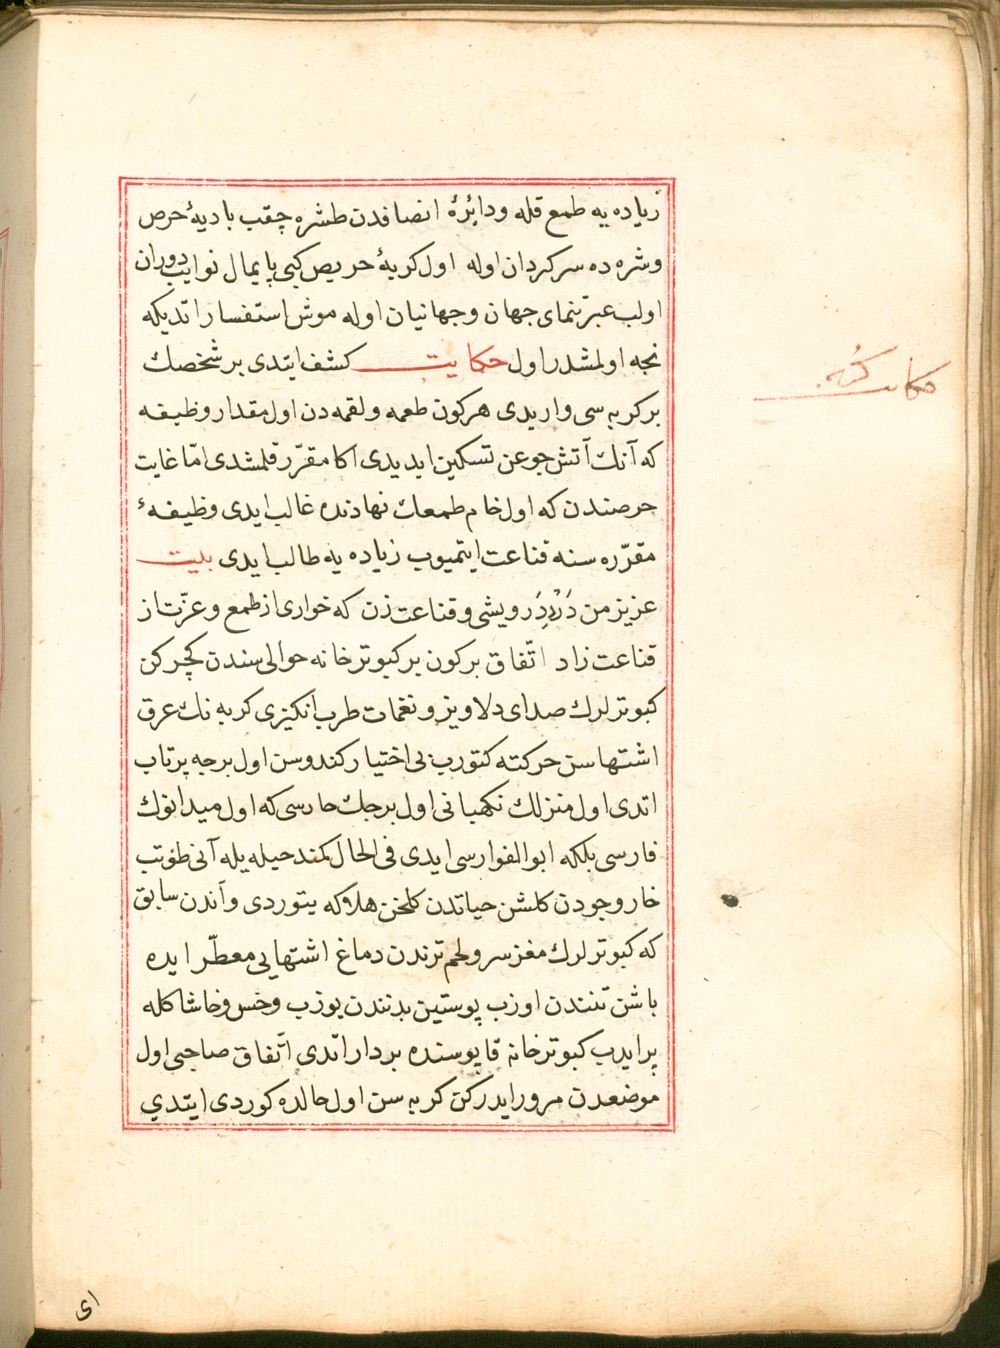 زیاده‌یه طمع قله ودائرهٔ انصافدن طشره چقب بادیهٔ حرص
وشره ده سرکردان اوله اول کربهٔ حریص کبی پایمال نوایب دوران
اولب عبرتنمای جهان وجهانیان اوله موش استفسار اتدیکه
نجه اولمشدر اول حکایت کشف ایتدی بر شخصك
بر کربه سی واریدی هرکون طعمه ولقمه دن اول مقدار وظیفه
که آنك آتش جوعن تسکین ایدیدی اکا مقرّر قلمشدی امّا غایت
حرصندن که اول خام طمعك نهادنده غالب ایدی وظیفهٔ
مقرّره سنه قناعت ایتمیوب زیاده یه طالب ایدی بیت
عزیز من دَرِ دَرویشی وقناعت زن که خواری از طمع وعزّت از
قناعت زاد اتّفاق برکون بر کبوترخانه حوالی سندن کچرکن
کبوترلرك صدای دلاویز ونغمات طرب انکیزی کربه نك عرق
اشتهاسن حرکته کتورب بی اختیار کندوسن اول برجه پرتاب
اتدی اول منزلك نکهبانی اول برجك حارسی که اول میدانوك
فارسی بلکه ابو الفوارسی ایدی فی الحال کمند حیله یله آنی طوتب
خار وجودن کلشن حیاتدن کلخن هلاکه یتوردی وآندن سابق
که کبوترلرك مغز سر ولحم ترندن دماغ اشتهایی معطّر ایده
باشن تنندن اوزب پوستین بدنندن یوزب وخس وخاشاکله
پر ایدب کبوترخانه قاپوسنده بردار اتدی اتّفاق صاحبی اول
موضعدن مرور ایدرکن کربه سن اول حالده کوردی ایتدی
حکایت کربه
ای